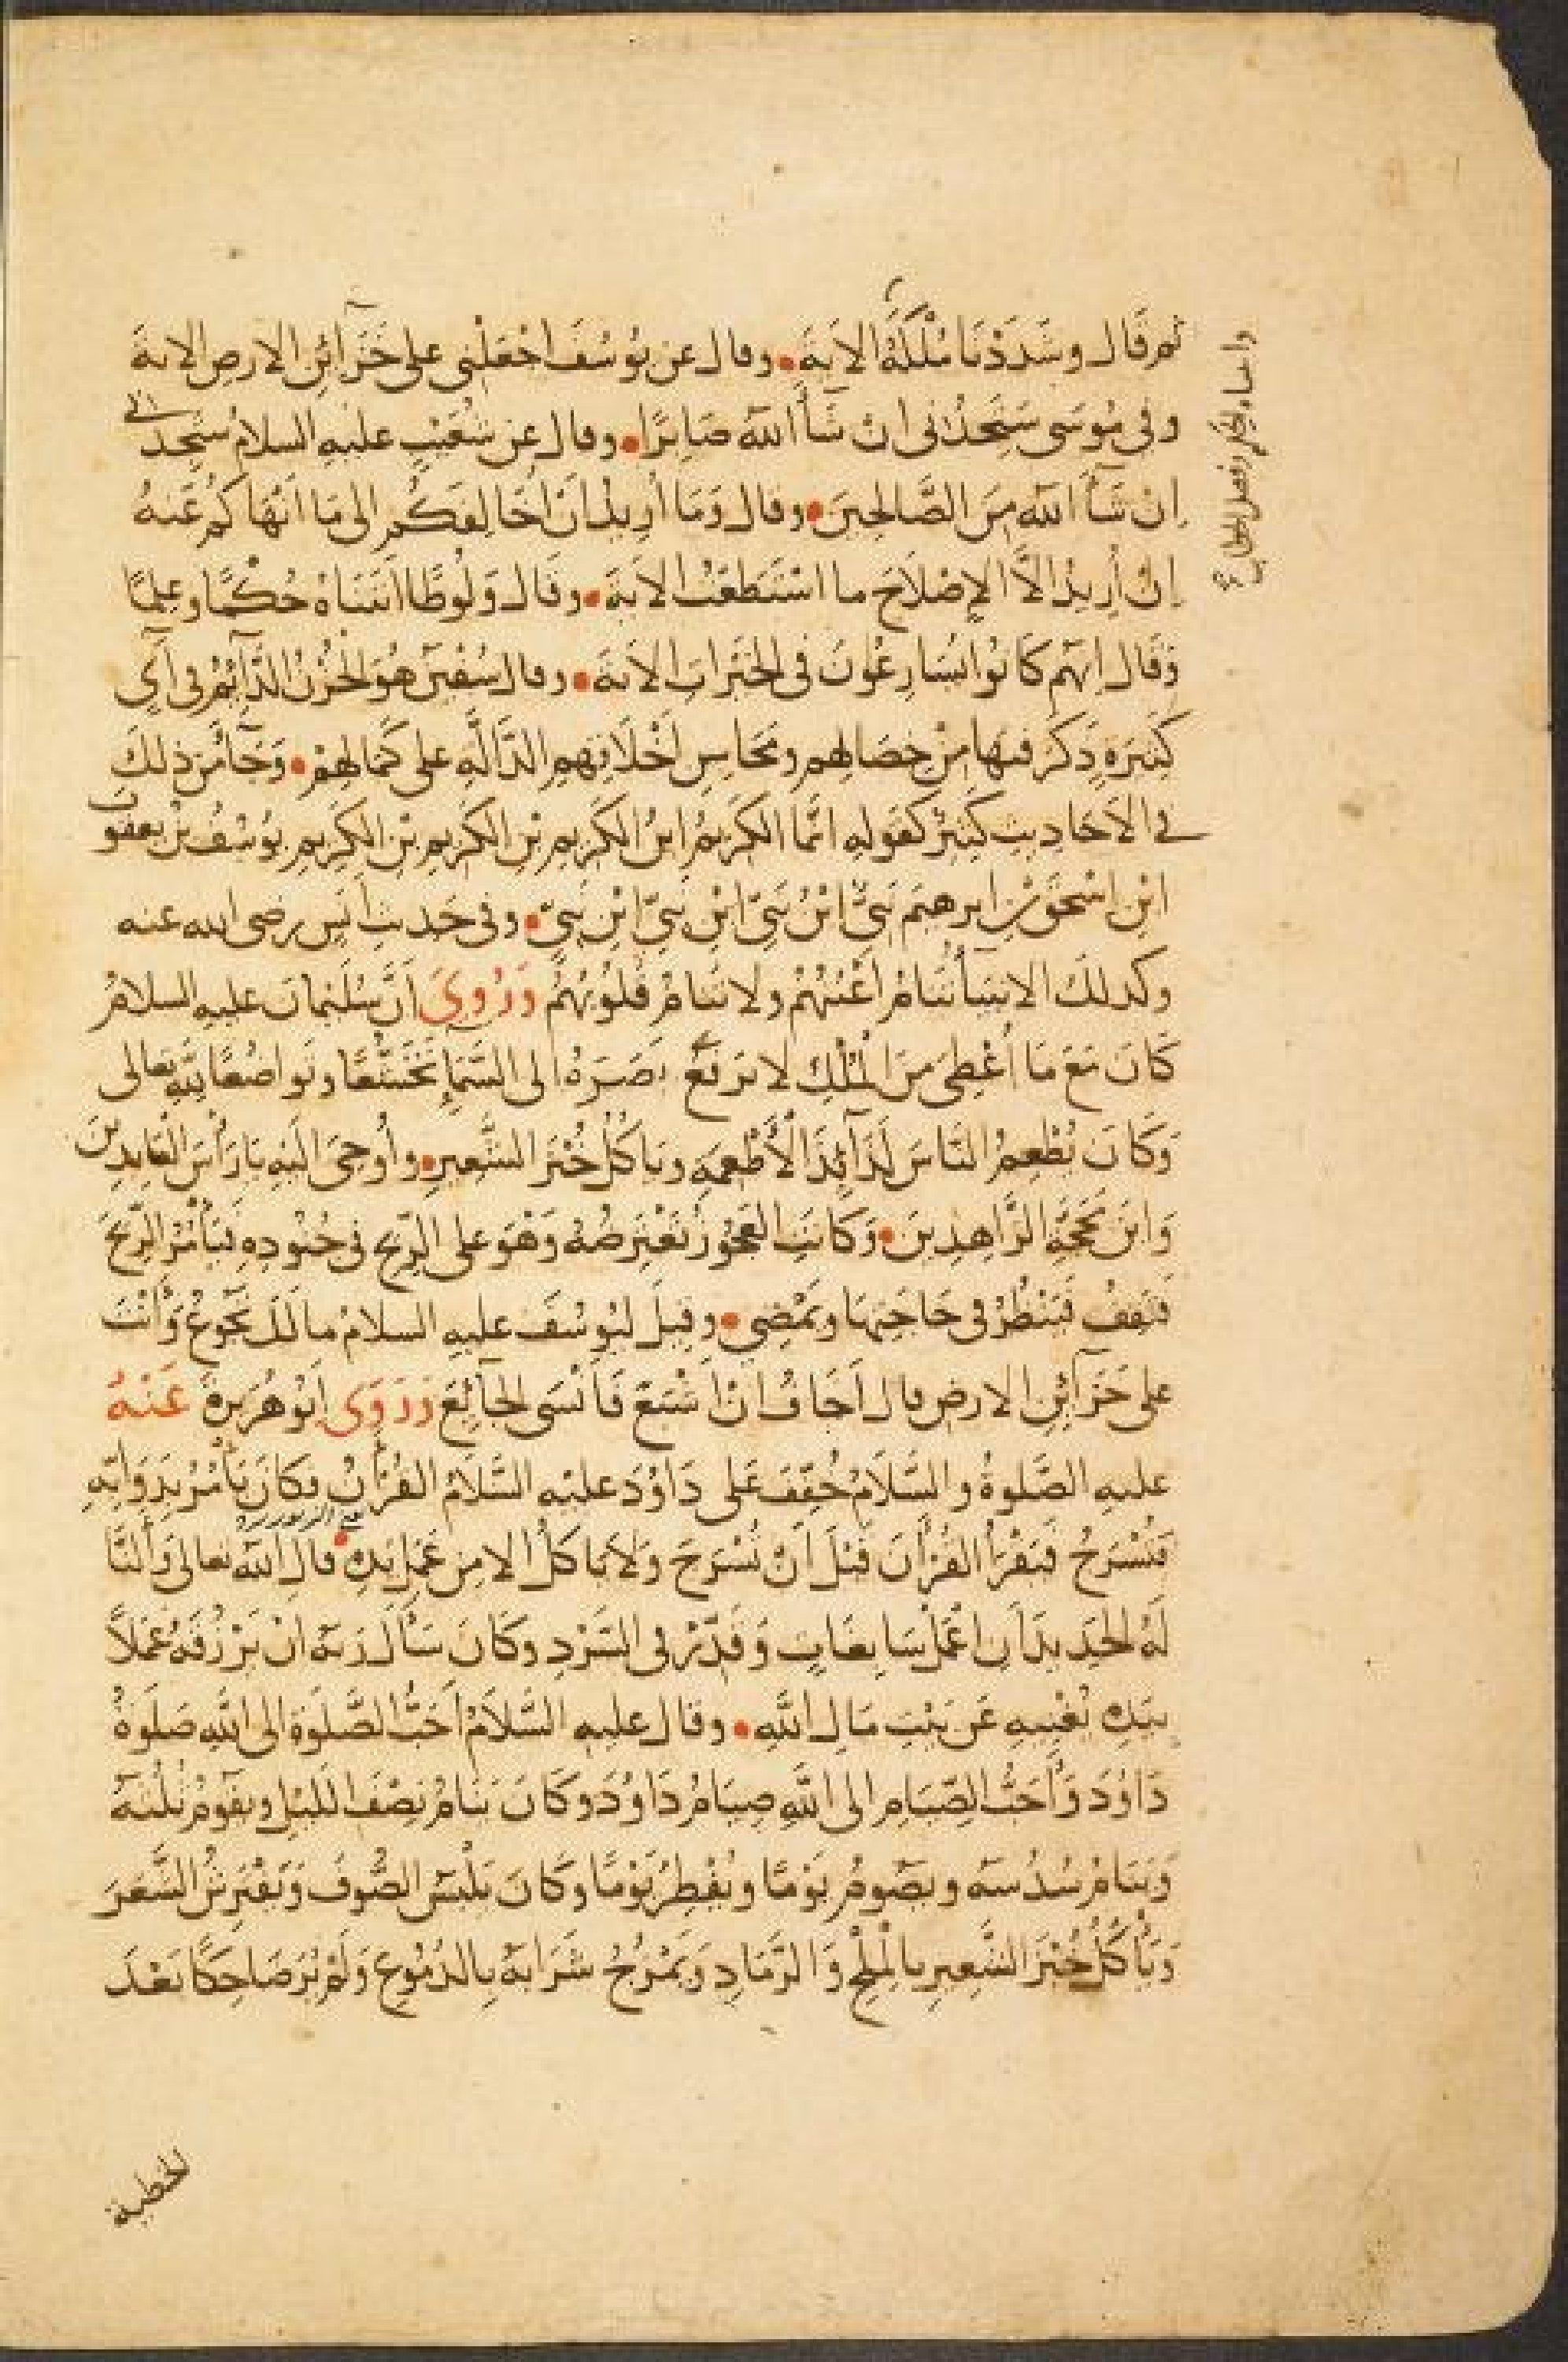 ثم قَال وشَدَدْنَا مُلْكَهُ الايَةَ وقال عن يُوسُفَ اجْعَلْنِي على خَزَآئِنِ الارض الاية
وفي مُوسَى سَتَجِدُنى ان شَآَ اللهُ صَابِرًا وقال عن شُعَيْبٍ عليه السلامُ ستجدني
اِن شَآَ اللهُ مِنَ الصَّالحِينَ وقال وَمَا أُرِيدُ ان اُخَالِفَكُم الى مَا اَنْهَاكُم عَنهُ
اِنْ اُرِيدُ الاَّ الاِصْلاَحَ ما اسْتَطَعْتُ الايَةَ وقَال وَلُوطًا اتَيْنَاهُ حُكْمًا وعِلمًا
وَقَال اِنهم كَانُوا يُسَارِعُونَ فى الخَيْرَاتِ الايَةَ وقال سُفْيٰن هُوَ الحُزْنُ الدَّآئِمُ فى آىٍ
كَثِيرَةٍ ذَكَرَ فيها مِنْ خِصَالهِم ومَحَاسِنِ اَخْلَاقِهِم الدَّالَّةِ على كَمَالهِمْ وَجَآَ مِنْ ذلكَ
فى الاَحَاديثِ كَثِيرٌ كَقوله انَّما الكَرِيمُ ابنُ الكَرِيمِ بْنِ الكَرِيمِ بْنِ الكَرِيمِ يوُسُفُ بنُ يعقوب
ابْنِ اسْحٰقَ بْنِ ابرهيم نَبِيُّ ابْنُ نَبِيّ ابْنِ نَبِيّ ابْنِ نَبِيّ وفى حَدِيثِ اَنَسٍ رضى الله عنه
وكذلكَ الانبيَآءُ تَنَامُ اَعْيُنُهُمْ ولا تَنَامُ قُلُوبُهُمْ وَرُوِىَ اَنَّ سُلَيْمَانَ عليه السلامُ
كَانَ مَعَ مَا اُعْطِىَ مِنَ المُلْكِ لا يَرفَعُ بَصَرَهُ الى السَّمَآءِ تَخَشُّعًا وتَواضُعًا لله تعالى
وَكَانَ يُطْعِمُ النَّاسَ لَذَآئِذَ الْأَطْعِمَةِ ويَاكُلُ خُبْزَ الشَّعِيرِ واُوحِىَ اليْهِ يَا رَأْسَ الْعَابِدِينَ
وَابنَ مَحَجَّةِ الزَّاهِدِينَ وَكَانتِ العَجُوزُ تَعْتَرِضُهُ وَهْوَ على الرّيحِ فى جُنُودِهِ فَيَأْمُرُ الرِّيحَ
فَتَقِفُ فَيَنْظُرُ فى حَاجَتِهَا ويَمْضِي وقِيلَ لِيُوسُفَ عليه السلامُ ما لَكَ تَجُوعُ وَأَنْتَ
على خَزَآئِنِ الارضِ قال اَخَافُ انْ اَشْبَعَ فَاَنْسَى الجآئِعَ وَرَوَى اَبُو هُرَيرةَ عَنْهُ
عليهِ الصَّلٰوةُ والسَّلَامُ خُفِّفَ عَلى دَاوُدَ عليْهِ السَّلَامُ القُرْأنُ فكَانَ يَأْمُرُ بِدَوَابِّهِ
فَتُسْرَجُ فَيَقْرَأُ القُرْأنَ قَبْلَ اَنْ تُسْرَجَ وَلاَ يَاكُلُ الا مِن عَمَلِ يَدِهِ قال اللهُ تعالى وَأَلَنَّا
لَهُ الحَدِيدَ اَنِ اعْمَلْ سَابِغَاتٍ وَقَدِّرْ فى السَّرْدِ وكَانَ سَأَلَ رَبَّهُ انْ يَرْزُقَهُ عَمَلاً
بِيَدِهِ يُغْنِيهِ عَن بَيْتِ مَالِ اللهِ وقال عليهِ السَّلاَمُ اَحَبُّ الصَّلٰوةِ الى اللهِ صَلَوةُ
دَاوُدَ وَأَحَبُّ الصِّيَامِ الى اللهِ صِيَامُ دَاوُدَ وكَانَ يَنَامُ نِصْفَ اللَيْلِ ويقُومُ ثُلُثَهُ
وَيَنَامُ سُدُسَهُ ويَصُومُ يَوْمًا ويُفْطِرُ يَوْمًا وكَانَ يَلْبَسُ الصُّوفَ وَيَفْتَرِشُ الشَّعَرَ
وَيَأْكُلُ خُبْزَ الشَّعِيرِ بالْمِلْحِ وَالرَّمَادِ وَيَمْزُجُ شَرَابَهُ بِالدُمُوعِ وَلَمْ يُرَ ضَاحِكًا بَعْدَ
الخطية
واتيناه الحكمة وفصل الخطاب